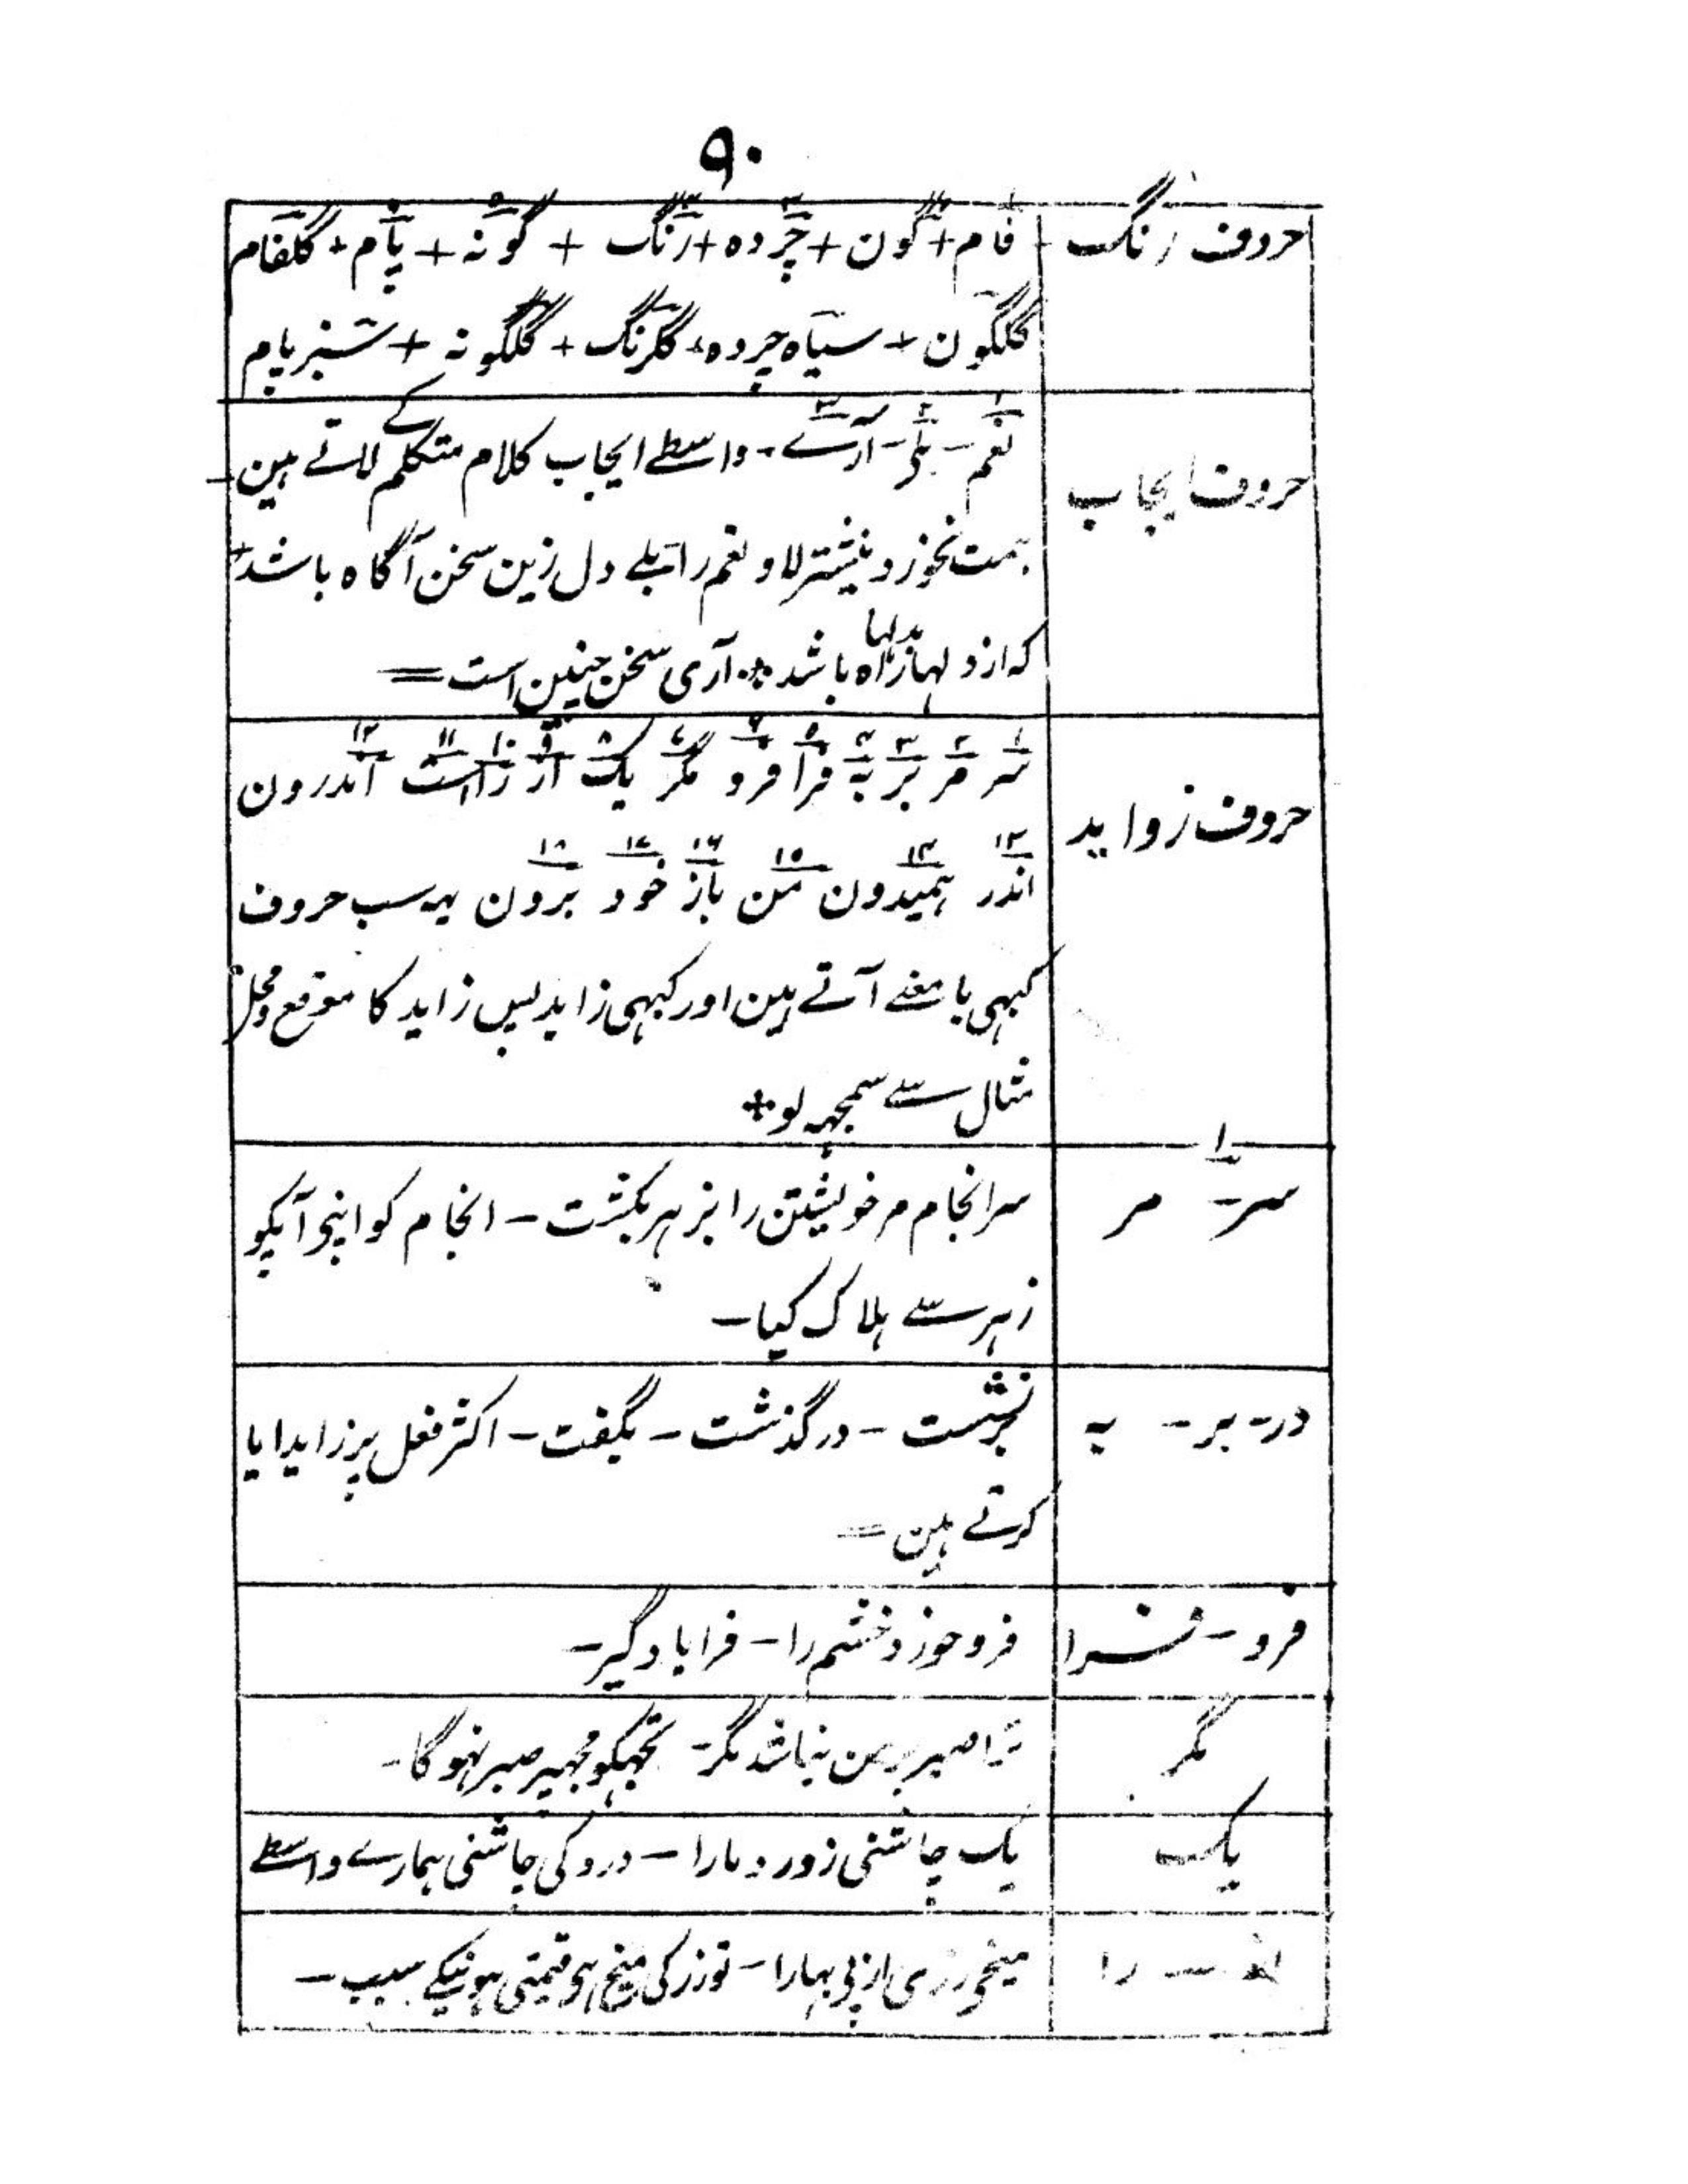 ۹۰
حروف رنگ فام + گون + چرده + رنگ + گونہ + پام + گلفام
گلگون + سیاہ چردہ + گلرنگ + گلگونہ + سبزپام
حروف ایجاب نعم - بلی - آرے - واسطے ایجاب کلام متکلم کے لاتے ہین -
لا و نعم را بلے دل زین سخن آگاہ باشد +
کہ از دلہا بدلہا راہ باشد + آری سخن چنین است =
حروف زواید سر مر بر بہ فرا فرو مگر یک از را است اندرون
اندر ہمیدون من باز خود برون یہ سب حروف
کبہی با معنے آتے ہین اور کبہی زاید پس زاید کا موقع و محل
مثال سے سمجہہ لو +
سر - مر سرانجام مر خویشتن را بزہر بکشت - انجام کو اپنی آپکو
زہر سے ہلاک کیا -
در - بر - بہ برنشست - درگذشت - بگفت - اکثر فعل پر زاید آیا
کرتے ہین =
فرو - فرا فرو خورد خشم را - فرا یاد گیر -
مگر ترا صبر بر من نباشد مگر - تجہکو مجہپر صبر نہوگا -
یک یک چاشنی ز درد ما را - درد کی چاشنی ہمارے واسطے
از - را میخی زری از پی بہا را - تو زر کی میخ ہی قیمتی ہونیکے سبب -